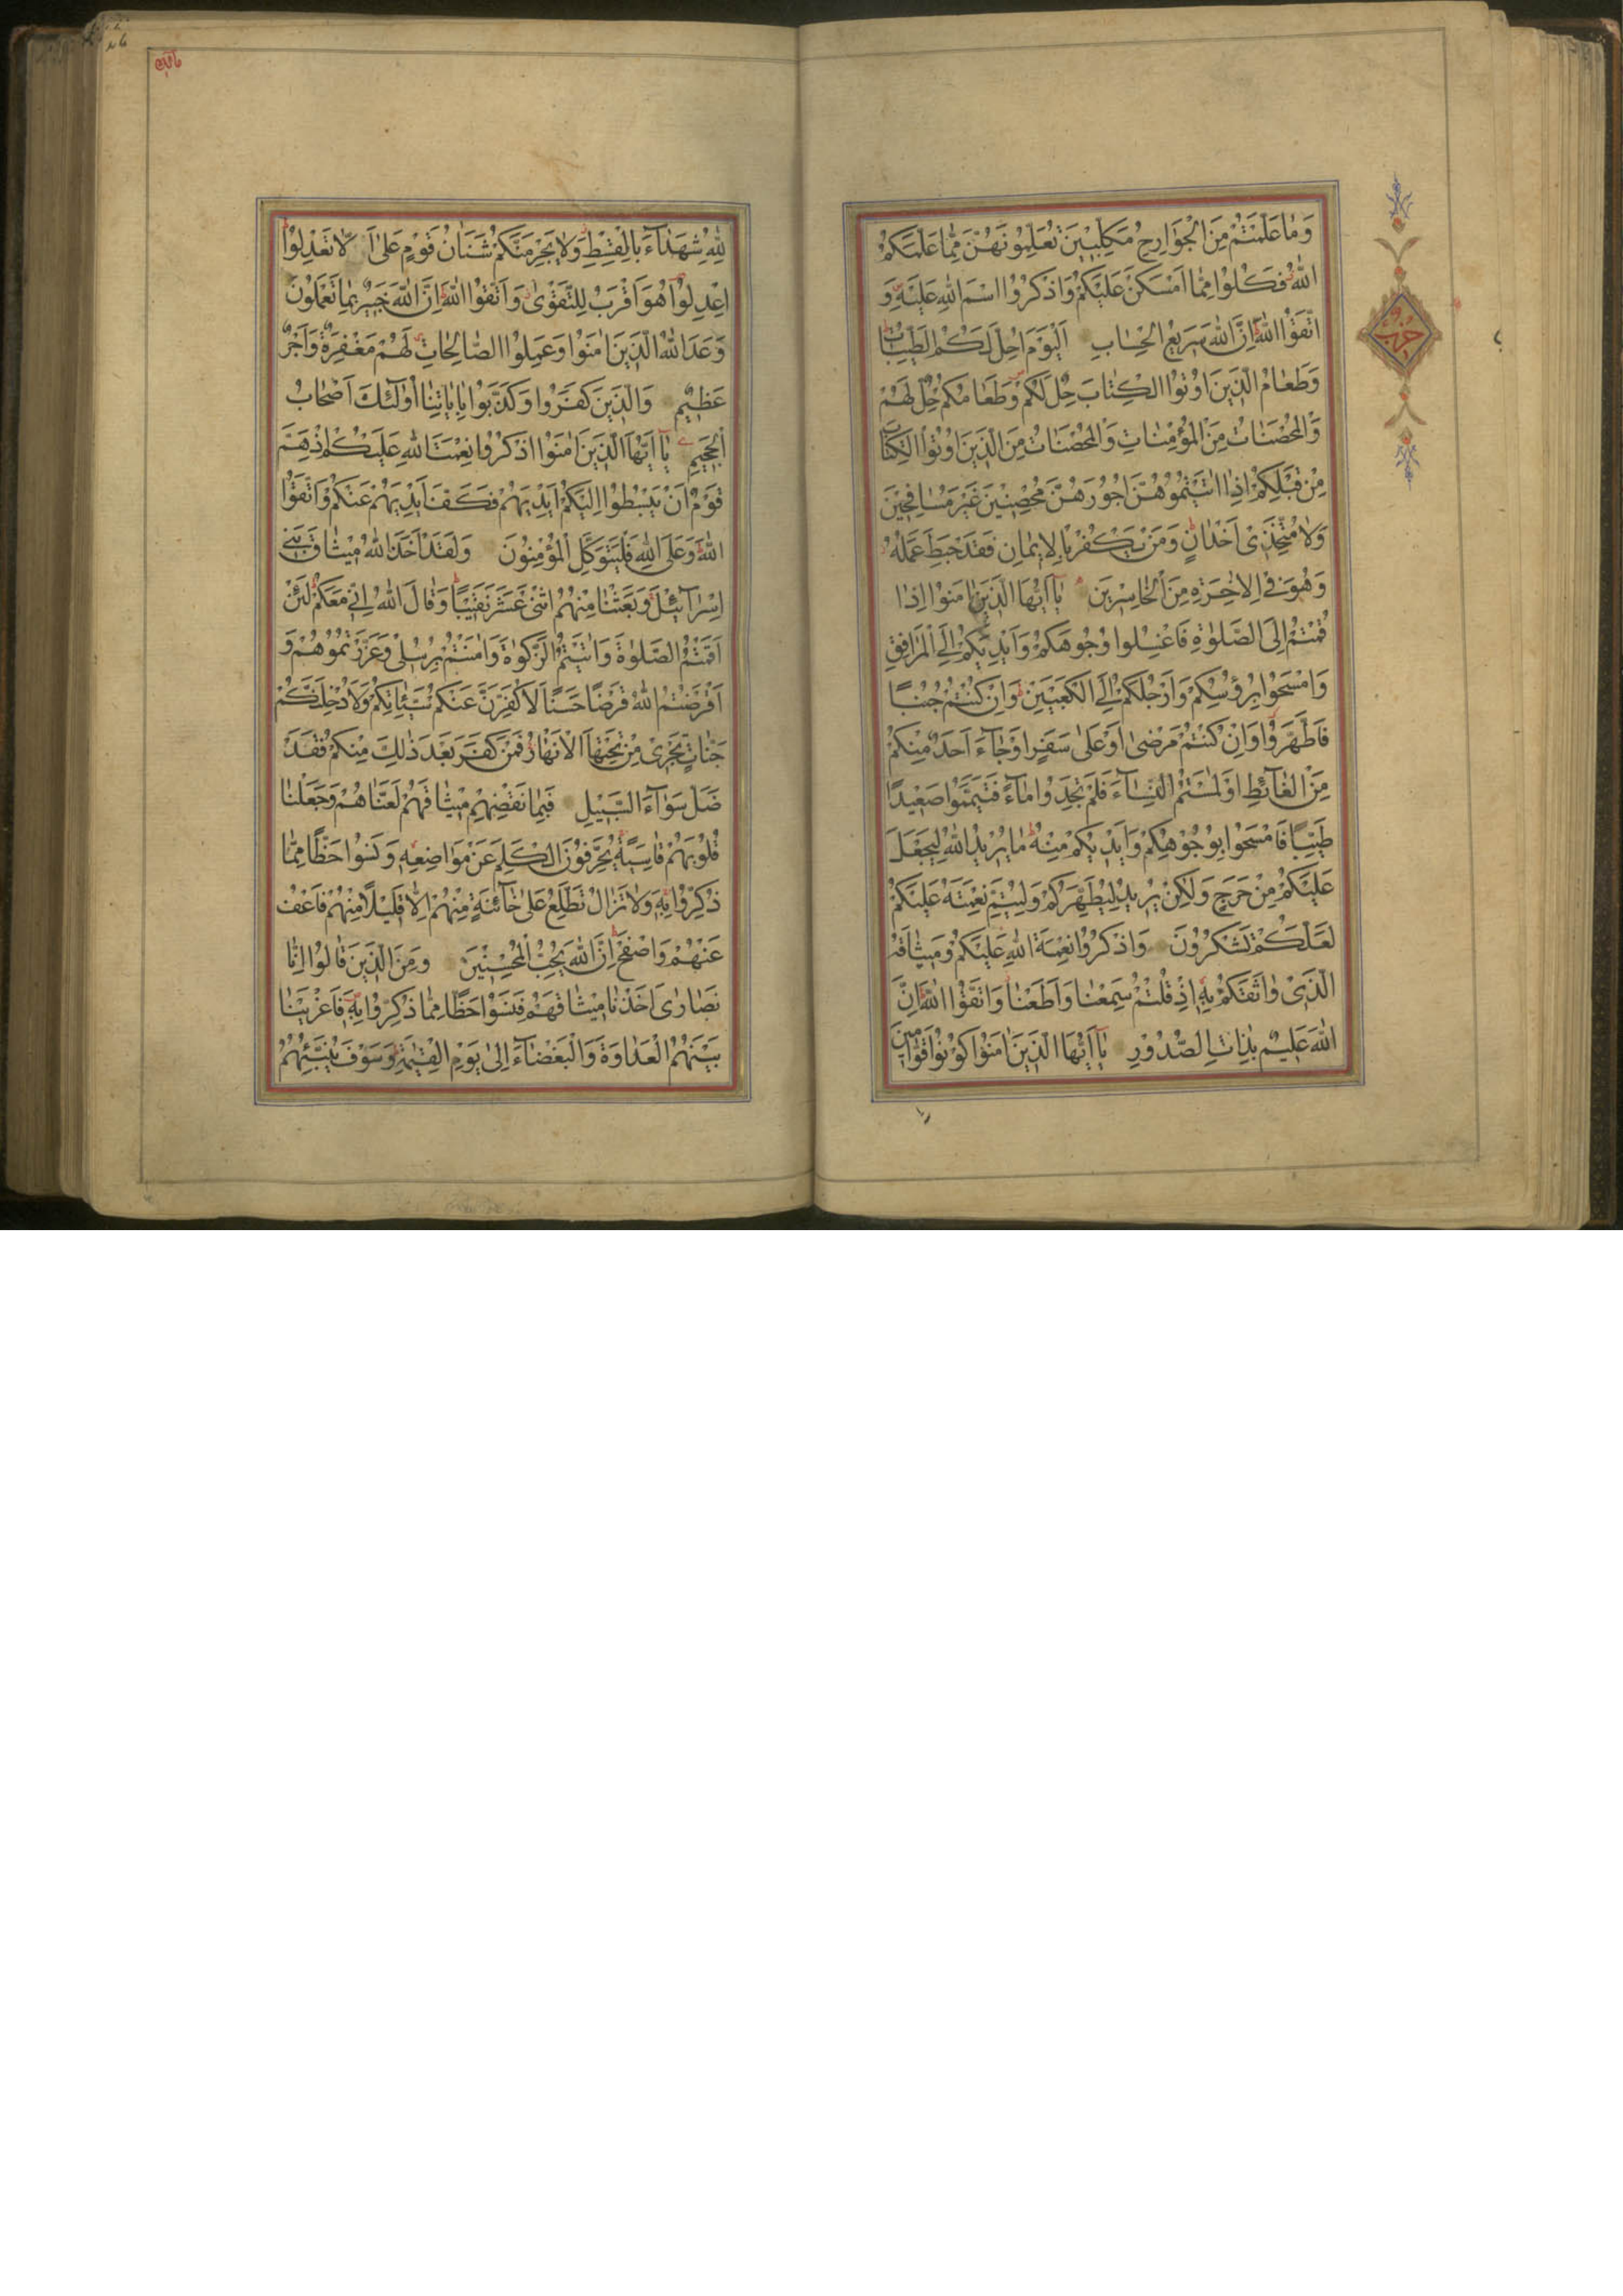 وَمَا عَلَّمْتُمْ مِنَ الْجَوَارِحِ مُكَلِّبِينَ تُعَلِّمُونَهُنَّ مِمَّا عَلَّمَكُمُ
اللّٰهُ فَكُلُوا مِمَّا اَمْسَكْنَ عَلَيْكُمْ وَاذْكُرُوا اسْمَ اللّٰهِ عَلَيْهِ وَ
اتَّقُوا اللّٰهَ اِنَّ اللّٰهَ سَرِيعُ الْحِسَابِ اَلْيَوْمَ اُحِلَّ لَكُمُ الطَّيِّبَاتُ
وَطَعَامُ الَّذِينَ اُوتُوا الْكِتَابَ حِلٌّ لَكُمْ وَطَعَامُكُمْ حِلٌّ لَهُمْ
وَالْمُحْصَنَاتُ مِنَ الْمُؤْمِنَاتِ وَالْمُحْصَنَاتُ مِنَ الَّذِينَ اُوتُوا الْكِتَابَ
مِنْ قَبْلِكُمْ اِذَا اٰتَيْتُمُوهُنَّ اُجُورَهُنَّ مُحْصِنِينَ غَيْرَ مُسَافِحِينَ
وَلَا مُتَّخِذِى اَخْدَانٍ وَمَنْ يَكْفُرْ بِالْاِيمَانِ فَقَدْ حَبِطَ عَمَلُهُ
وَهُوَ فِى الْاٰخِرَةِ مِنَ الْخَاسِرِينَ يَا اَيُّهَا الَّذِينَ اٰمَنُوا اِذَا
قُمْتُمْ اِلَى الصَّلٰوةِ فَاغْسِلُوا وُجُوهَكُمْ وَاَيْدِيَكُمْ اِلَى الْمَرَافِقِ
وَامْسَحُوا بِرُؤُسِكُمْ وَاَرْجُلَكُمْ اِلَى الْكَعْبَيْنِ وَاِنْ كُنْتُمْ جُنُبًا
فَاطَّهَّرُوا وَاِنْ كُنْتُمْ مَرْضٰى اَوْ عَلٰى سَفَرٍ اَوْ جَآءَ اَحَدٌ مِنْكُمْ
مِنَ الْغَآئِطِ اَوْ لٰمَسْتُمُ النِّسَآءَ فَلَمْ تَجِدُوا مَآءً فَتَيَمَّمُوا صَعِيدًا
طَيِّبًا فَامْسَحُوا بِوُجُوهِكُمْ وَاَيْدِيكُمْ مِنْهُ مَا يُرِيدُ اللّٰهُ لِيَجْعَلَ
عَلَيْكُمْ مِنْ حَرَجٍ وَلٰكِنْ يُرِيدُ لِيُطَهِّرَكُمْ وَلِيُتِمَّ نِعْمَتَهُ عَلَيْكُمْ
لَعَلَّكُمْ تَشْكُرُونَ وَاذْكُرُوا نِعْمَةَ اللّٰهِ عَلَيْكُمْ وَمِيثَاقَهُ
الَّذِى وَاثَقَكُمْ بِهِ اِذْ قُلْتُمْ سَمِعْنَا وَاَطَعْنَا وَاتَّقُوا اللّٰهَ اِنَّ
اللّٰهَ عَلِيمٌ بِذَاتِ الصُّدُورِ يَا اَيُّهَا الَّذِينَ اٰمَنُوا كُونُوا قَوَّامِينَ
حزب
لِلّٰهِ شُهَدَآءَ بِالْقِسْطِ وَلَا يَجْرِمَنَّكُمْ شَنَاٰنُ قَوْمٍ عَلٰى اَلَّا تَعْدِلُوا
اِعْدِلُوا هُوَ اَقْرَبُ لِلتَّقْوٰى وَاتَّقُوا اللّٰهَ اِنَّ اللّٰهَ خَبِيرٌ بِمَا تَعْمَلُونَ
وَعَدَ اللّٰهُ الَّذِينَ اٰمَنُوا وَعَمِلُوا الصَّالِحَاتِ لَهُمْ مَغْفِرَةٌ وَاَجْرٌ
عَظِيمٌ وَالَّذِينَ كَفَرُوا وَكَذَّبُوا بِاٰيَاتِنَا اُولٰٓئِكَ اَصْحَابُ
الْجَحِيمِ يَا اَيُّهَا الَّذِينَ اٰمَنُوا اذْكُرُوا نِعْمَتَ اللّٰهِ عَلَيْكُمْ اِذْ هَمَّ
قَوْمٌ اَنْ يَبْسُطُوا اِلَيْكُمْ اَيْدِيَهُمْ فَكَفَّ اَيْدِيَهُمْ عَنْكُمْ وَاتَّقُوا
اللّٰهَ وَعَلَى اللّٰهِ فَلْيَتَوَكَّلِ الْمُؤْمِنُونَ وَلَقَدْ اَخَذَ اللّٰهُ مِيثَاقَ بَنِى
اِسْرَآئِيلَ وَبَعَثْنَا مِنْهُمُ اثْنَىْ عَشَرَ نَقِيبًا وَقَالَ اللّٰهُ اِنِّى مَعَكُمْ لَئِنْ
اَقَمْتُمُ الصَّلٰوةَ وَاٰتَيْتُمُ الزَّكٰوةَ وَاٰمَنْتُمْ بِرُسُلِى وَعَزَّرْتُمُوهُمْ وَ
اَقْرَضْتُمُ اللّٰهَ قَرْضًا حَسَنًا لَاُكَفِّرَنَّ عَنْكُمْ سَيِّئَاتِكُمْ وَلَاُدْخِلَنَّكُمْ
جَنَّاتٍ تَجْرِى مِنْ تَحْتِهَا الْاَنْهَارُ فَمَنْ كَفَرَ بَعْدَ ذٰلِكَ مِنْكُمْ فَقَدْ
ضَلَّ سَوَآءَ السَّبِيلِ فَبِمَا نَقْضِهِمْ مِيثَاقَهُمْ لَعَنَّاهُمْ وَجَعَلْنَا
قُلُوبَهُمْ قَاسِيَةً يُحَرِّفُونَ الْكَلِمَ عَنْ مَوَاضِعِهِ وَنَسُوا حَظًّا مِمَّا
ذُكِّرُوا بِهِ وَلَا تَزَالُ تَطَّلِعُ عَلٰى خَآئِنَةٍ مِنْهُمْ اِلَّا قَلِيلًا مِنْهُمْ فَاعْفُ
عَنْهُمْ وَاصْفَحْ اِنَّ اللّٰهَ يُحِبُّ الْمُحْسِنِينَ وَمِنَ الَّذِينَ قَالُوا اِنَّا
نَصَارٰى اَخَذْنَا مِيثَاقَهُمْ فَنَسُوا حَظًّا مِمَّا ذُكِّرُوا بِهِ فَاَغْرَيْنَا
بَيْنَهُمُ الْعَدَاوَةَ وَالْبَغْضَآءَ اِلٰى يَوْمِ الْقِيٰمَةِ وَسَوْفَ يُنَبِّئُهُمُ